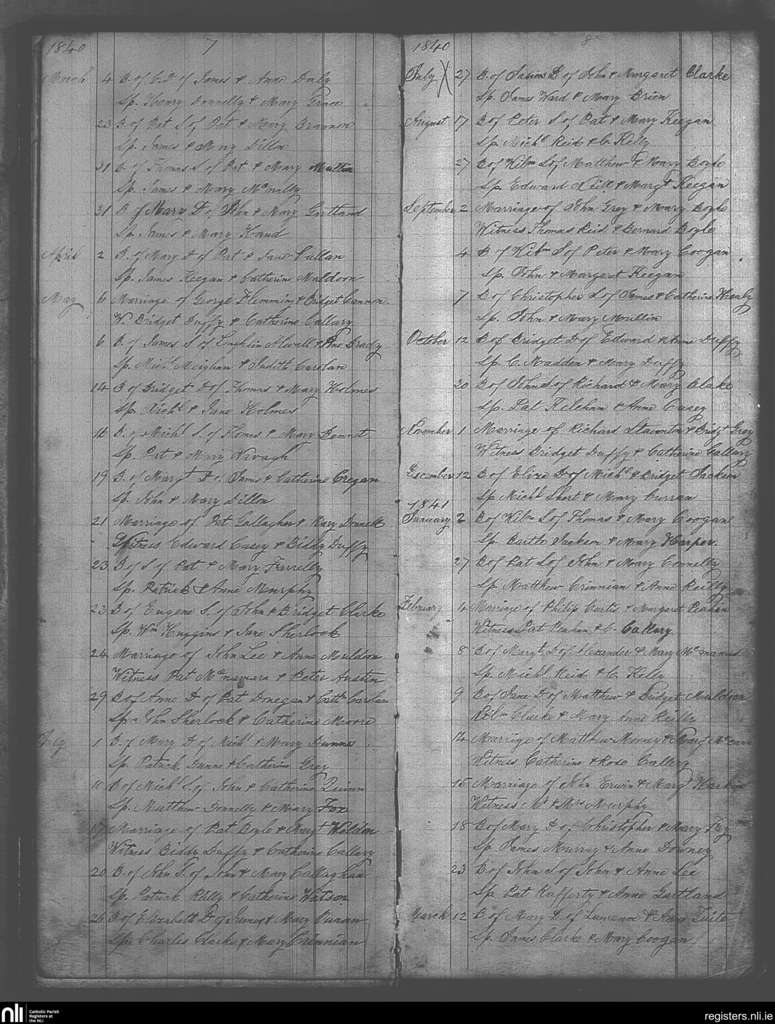 1840 7
March 4 B. of C. D. of James & Anne Daly
Sp. Henry Donnelly & Mary Grace
23 B. of Pat S. of Pat & Mary Brannon
Sp. James & Mary Dillon
31 B. of James S. of Pat & Mary
Sp. James & Mary McNally
31 B. of Mary D. of John & Mary Gartland
Sp. James & Mary Hand
April 2 B. of Mary D. of Pat & Jane Cullan
Sp. James Keegan & Catherine Muldoon
May 6 Marriage of George Flemming & Bridget Cannon
W. Bridget Duffy & Catherine Callery
6 B. of James S. of & Brady
Sp. Meighan & Judith Carolan
14 B. of Bridget D. of Thomas & Mary Holmes
Sp. Richd. & Jane Holmes
14 B. of Michl. S. of & Mary
Sp. Pat & Mary Kavagh
19 B. of Margt. D. of James & Catherine Cregan
Sp. John & Mary Dillon
21 Marriage of Pat Gallagher & Mary
Witness Edward Casey & Biddy Duffy
23 B. of S. of Pat & Mary Farrelly
Sp. Patrick & Anne Murphy
23 B. of Eugene S. of John & Bridget Clarke
Sp. Wm. Huggins & Jane Sherlock
24 Marriage of John Lee & Anne Muldon
Witness Pat McNamara & Peter Austin
29 B. of Anne D. of Pat Donegan & Cath. Carolan
Sp. John Sherlock & Catherine Moore
July 1 B. of Mary D. of Michl. & Mary Gunne
Sp. Patrick Gunne & Catherine Grey
11 B. of Michl. S. of John & Catherine Quinn
Sp. Matthew Donnelly & Mary Fox
17 Marriage of Pat Boyle & Margt. Waldon
Witness Biddy Duffy & Catherine Callery
20 B. of John S. of John & Mary Callaghan
Sp. Patrick Reilly & Catherine Watson
26 B. of Elizabeth D. of James & Mary
Sp. Charles Clarke & Mary Crinnian
1840 8
July 27 B. of D. of John & Margaret Clarke
Sp. James Ward & Mary Brien
August 17 B. of Peter S. of Pat & Mary Keegan
Sp. Michl. Reid & C. Kelly
27 B. of Wilm. S. of Matthew & Mary Boyle
Sp. Edward & Margt. Keegan
September 2 Marriage of John Grey & Mary Boyle
Witness Thomas Reid & Bernard Boyle
4 B. of Wilm. S. of Peter & Mary Coogan
Sp. John & Margaret Keegan
7 B. of Christopher S. of James & Catherine
Sp. John & Mary Moullin
October 12 B. of Bridget D. of Edward & Anne Duffy
Sp. C. Madden & Mary Duffy
20 B. of John S. of Richard & Mary Blake
Sp. Pat Kelehan & Anne Casey
November 1 Marriage of Richard & Bridgt. Grey
Witness Bridget Duffy & Catherine Callery
December 12 B. of Eliza D. of Michl. & Bridget Jackson
Sp. Michl. & Mary Curran
1841
January 2 B. of Wilm. S. of Thomas & Mary Coogan
Sp. Bartle Jackson & Mary Harper.
27 B. of Pat S. of John & Mary Connelly
Sp. Matthew Crinnian & Anne Reilly
February 4 Marriage of Philip Curtis & Margaret
Witness Pat & C. Callery
8 B. of Margt. D. of Alexander & Mary McManus
Sp. Michl. Reid & C. Kelly
9 B. of Jane D. of Matthew & Bridget Muldoon
Clarke & Mary Anne Reilly
14 Marriage of Matthew & Mary
Witness Catherine & Rose Callery
15 Marriage of John Erwin & Margt.
Witness Mr. & Mrs. Murphy
18 B. of Mary D. of Christopher & Mary Fay
Sp. James Murray & Anne Downey
23 B. of John S. of John & Anne Lee
Sp. Pat Rafferty & Anne Gartland
March 12 B. of Mary D. of Lawrence & Anne
Sp. James Clark & Mary Coogan
nli Catholic Parish
Registers at
the NLI
registers.nli.ie